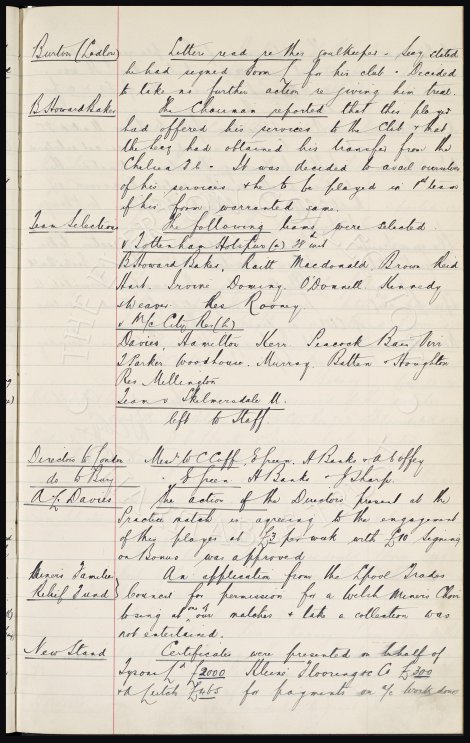 Burton (Ludlow) Letters read re this goalkeeper. Secy stated
he had signed Form L for his club. Decided
to take no further action re giving him trial.
B Howard Baker The Chairman reported that this player
had offered his services to the Club & that
the Secy had obtained his transfer from the
Chelsea F.C. It was decided to avail ourselves
of his services & he to be played in 1st team
if his form warranted same.
Team Selections The following teams were selected.
v Tottenham Hotspur (a) 28th inst
B Howard Baker, Raitt Macdonald, Brown Reid
Hart, Irvine Dominy, O'Donnell Kennedy
& Weaver. Res Rooney.
v M/c City Res (h)
Davies, Hamilton Kerr. Peacock Bain Virr
T Parker, Woodhouse, Murray, Batten & Houghton
Res. Mellington
Team v Skelmersdale U.
left to Staff.
Directors to London Messrs W C Cuff, E Green, A Banks & A Coffey
do to Bury E Green H Banks & J Sharp.
A L Davies The action of the Directors present at the
Practice match in agreeing to the engagement
of this player at £3 per week with £10 Signing
on Bonus was approved
Miners Families An application from the L'pool Trades
Relief Fund } Council for permission for a Welsh Miners Choir
to sing at one of our matches & take a collection was
not entertained.
New Stand Certificates were presented on behalf of
Tysons Ld £2000 Kleine Flooring &c Co £300
& A Leitch £465 for payments on a/c work done